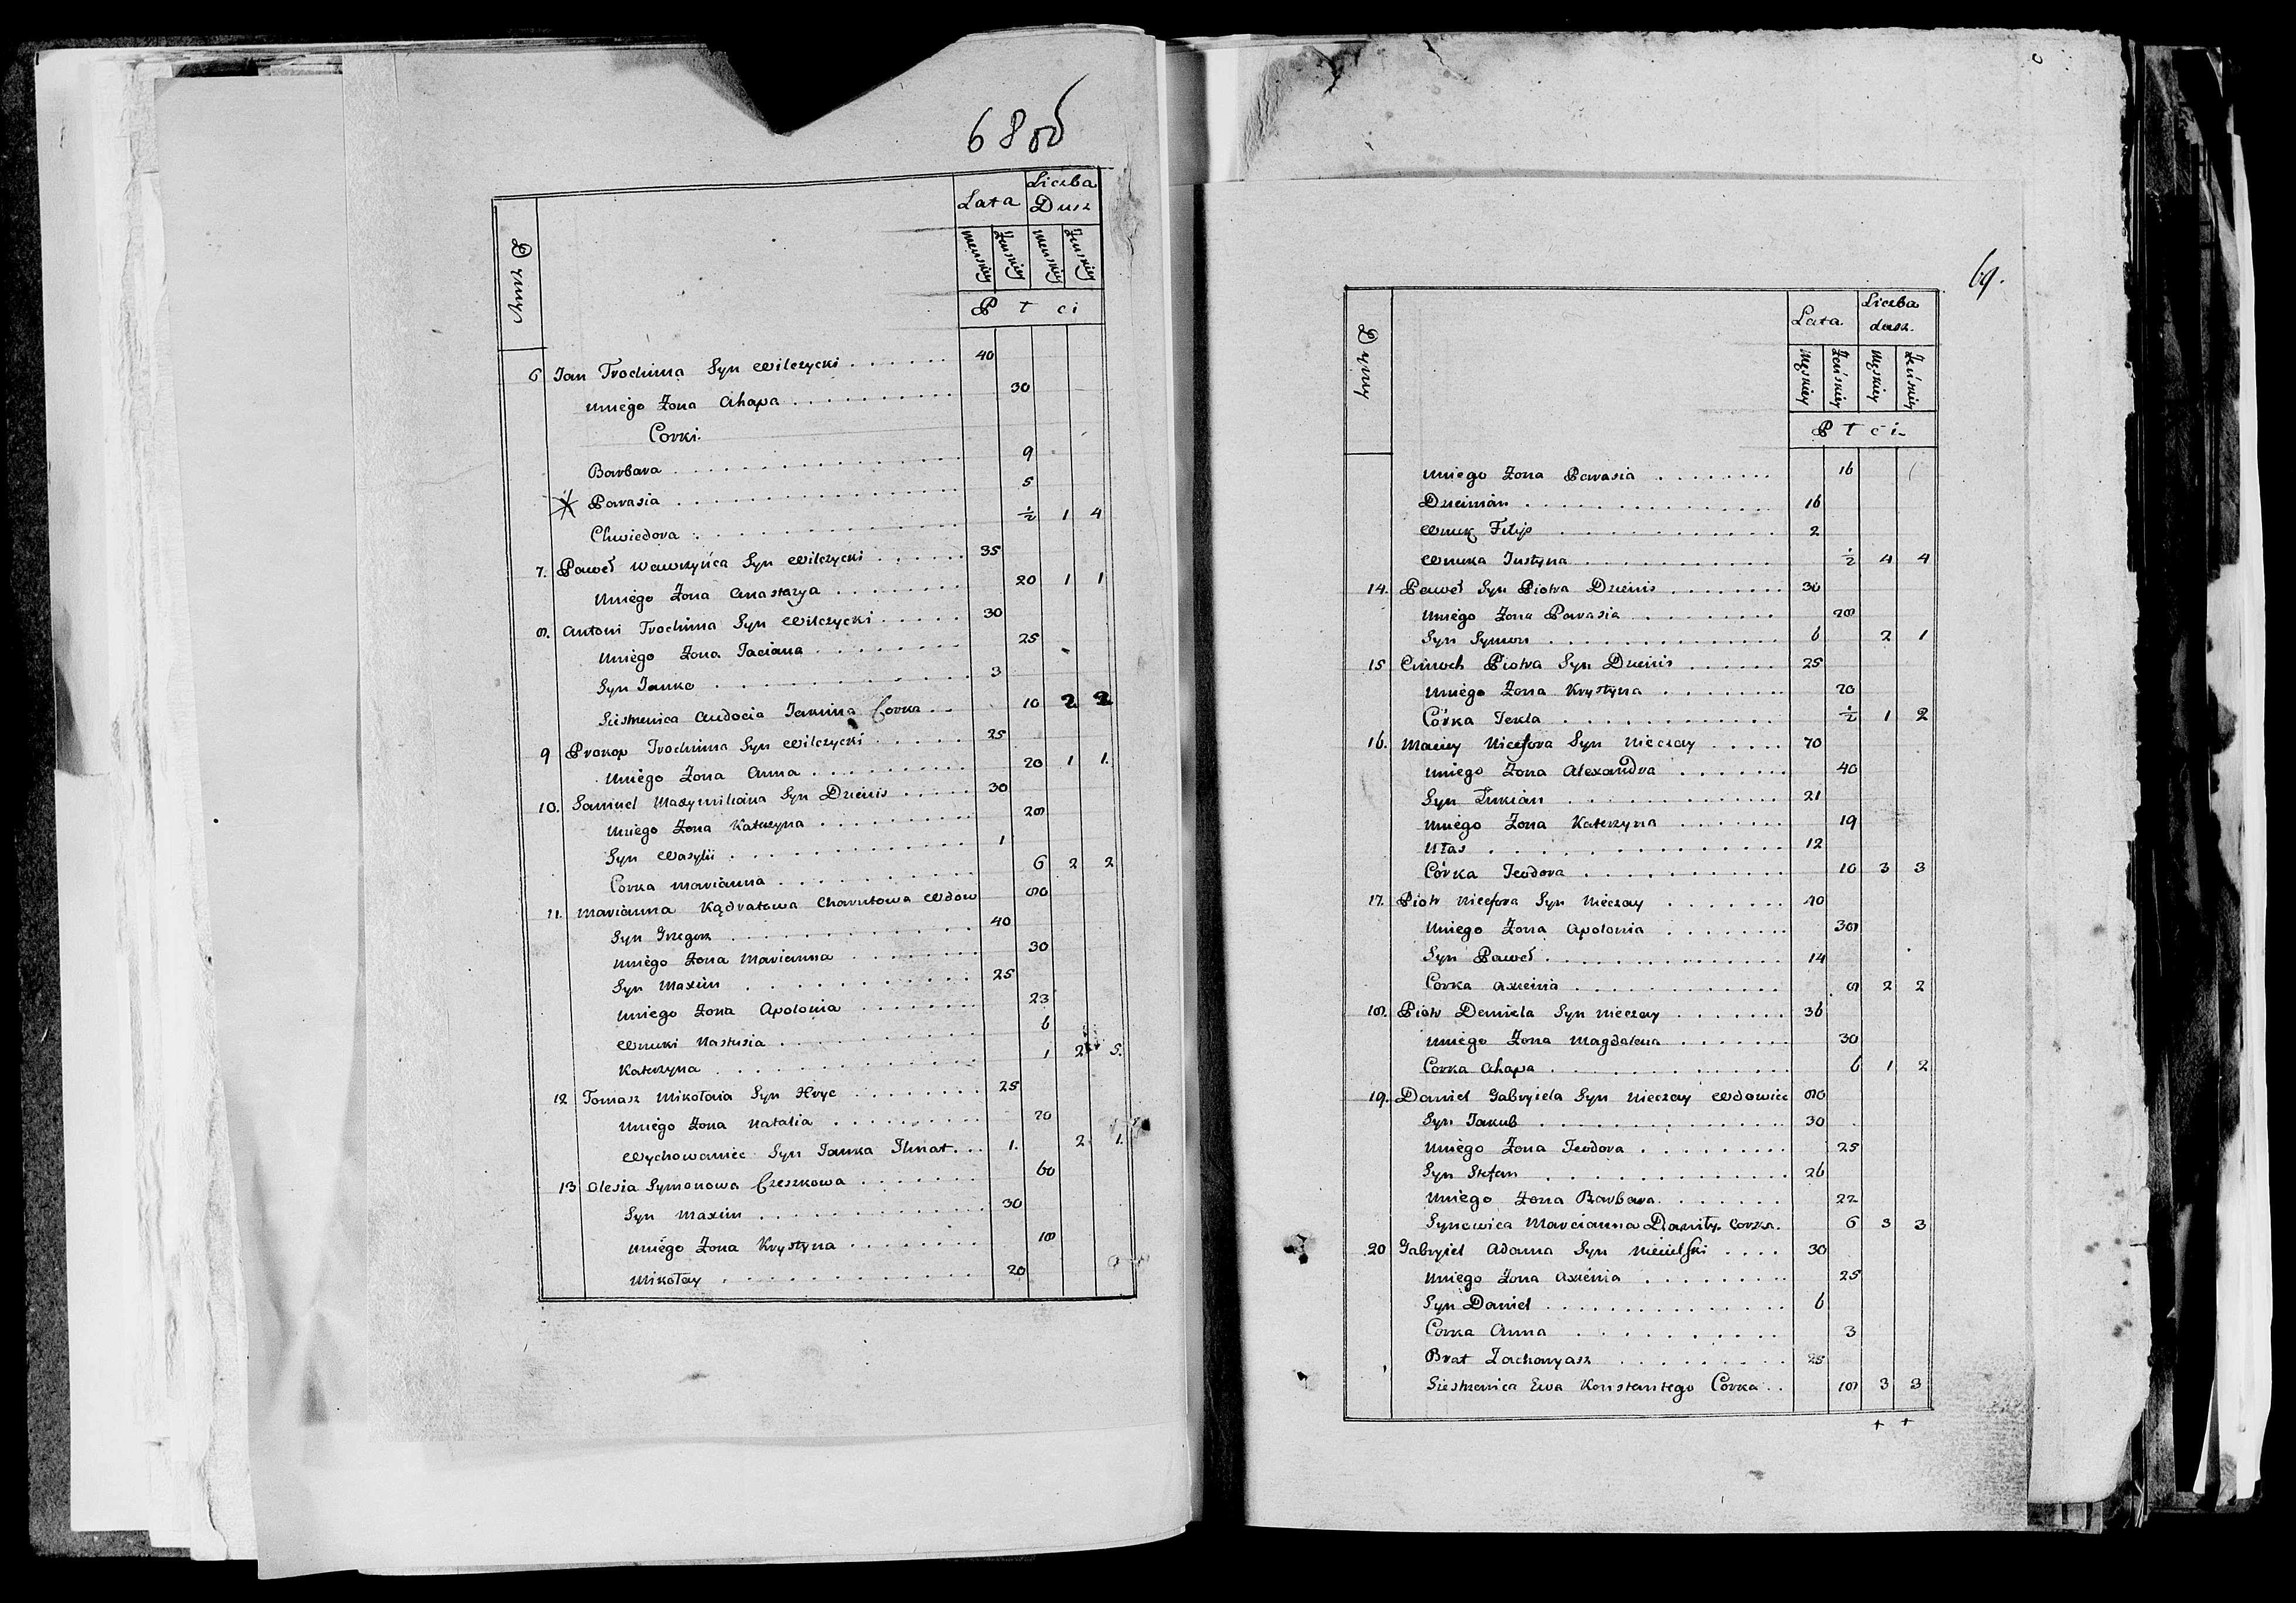 68 об
Dymy
Lata
Liczba Dusz
Męskiey Żeńskiey Męskiey Żeńskiey
P ł c i
6 Jan Trochima Syn Wilczycki . . . . . . 40
Uniego Żona Ahapa . . . . . . . . . . 30
Corki.
Barbara . . . . . . . . . . . . . . 9
Parasia . . . . . . . . . . . . . . 5
Chwiedora . . . . . . . . . . . . . ½ 1 4
7. Paweł Wawrzyńca Syn Wilczycki . . . . . . 35
Uniego Żona Anastazya . . . . . . . . 20 1 1
8. Antoni Trochima Syn Wilczycki . . . . . 30
Uniego Żona Taciana . . . . . . . . 25
Syn Janko . . . . . . . . . . . . . 3
Siestrzenica Audocia Jakima Corka . . 10 2 2
9 Prokop Trochima Syn Wilczycki . . . . . 25
Uniego Żona Anna . . . . . . . . . . 20 1 1.
10. Samuel Maxymiliana Syn Dzienis . . . . . 30
Uniego Żona Katerzyna . . . . . . . . . 28
Syn Wasylii . . . . . . . . . . . . 1
Corka Marianna . . . . . . . . . . . 6 2 2
11. Marianna Kądratowa Charutowa Wdow 80
Syn Grzegorz . . . . . . . . . . . . 40
Uniego Żona Marianna . . . . . . . . 30
Syn Maxim . . . . . . . . . . . . 25
Uniego Żona Apolonia . . . . . . . 23
Wnuki Nastusia . . . . . . . . . . 6
Katerzyna . . . . . . . . . . . . . 1 2 5.
12 Tomasz Mikołaia Syn Hryc . . . . . . . . 25
Uniego Żona Natalia . . . . . . . . . 20
Wychowaniec Syn Janka Ihnat . . . 1. 2 1.
13 Olesia Symonowa Czeszkowa . . . . . . . 60
Syn Maxim . . . . . . . . . . . . . 30
Uniego Żona Krystyna . . . . . . . . 18
Mikołay . . . . . . . . . . . . . . 20
69.
Dymy
Lata.
Liczba dusz.
Męskiey Żeńskiey Męskiey Żeńskiey
P ł c i
Uniego Żona Parasia . . . . . . . . 16
Dziemian . . . . . . . . . . . . . . 16
Wnuk Filip . . . . . . . . . . . . 2
Wnuka Justyna . . . . . . . . . . . ½ 4 4
14. Paweł Syn Piotra Dzienis . . . . . . . . 30
Uniego Żona Parasia . . . . . . . . . 28
Syn Symon . . . . . . . . . . . . . . 6 2 1
15 Cimoch Piotra Syn Dzienis . . . . . . 25
Uniego Żona Krystyna . . . . . . . . 20
Córka Tekla . . . . . . . . . . . . ½ 1 2
16. Maciey Nicefora Syn Nieczay . . . . . 70
Uniego Żona Alexandra . . . . . . . 40
Syn Łukian . . . . . . . . . . . . 21
Uniego Żona Katerzyna . . . . . . . 19
Ułas . . . . . . . . . . . . . . . . 12
Córka Teodora . . . . . . . . . . . 10 3 3
17. Piotr Nicefora Syn Nieczay . . . . . . . 40
Uniego Żona Apolonia . . . . . . . . 38
Syn Paweł . . . . . . . . . . . . . . 14
Corka Axienia . . . . . . . . . . . . 8 2 2
18. Piotr Daniela Syn Nieczay . . . . . . . 36
Uniego Żona Magdalena . . . . . . . 30
Corka Ahapa . . . . . . . . . . . . . . 6 1 2
19. Daniel Gabryiela Syn Nieczay Wdowiec 80
Syn Jakub . . . . . . . . . . . . . . 30
Uniego Żona Teodora . . . . . . . . . 25
Syn Stefan . . . . . . . . . . . . . 26
Uniego Żona Barbara . . . . . . . 22
Synowica Marcianna Daniły Corka. 6 3 3
20 Gabryiel Adama Syn Niecielski . . . . 30
Uniego Żona Axienia . . . . . . . . . 25
Syn Daniel . . . . . . . . . . . . . . . 6
Corka Anna . . . . . . . . . . . 3
Brat Zacharyasz . . . . . . . . . 25
Siestrzenica Ewa Konstantego Corka . . 18 3 3
+ +